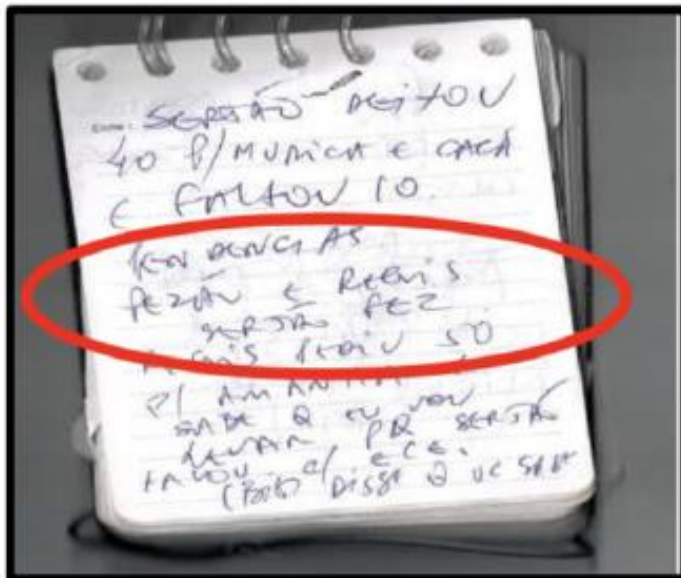 SERJÃO DEIXOU
40 P/ MUNICA E CACÁ
E FALTOU 10.
PENDENCIAS
PEZÃO E REGIS
SERJÃO FEZ
REGIS PEDIU 50
P/ AMANHÃ
SABE Q EU VOU
LEVAR PQ SERJÃO
FALOU C/ ELE.
DISSE Q VC SABE